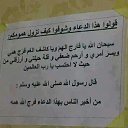 قولوا هذا الدعاء وشوفوا كيف تزول همومكم
سبحان الله يا فارج الهم ويا كاشف الغم فرج همي
ويسر أمري و أرحم ضعفي و قلة حيلتي و أرزقني من
حيث لا أحتسب يا رب العالمين
قال رسول الله صلى الله عليه وسلم :
من أخبر الناس بهذا الدعاء فرج الله همه